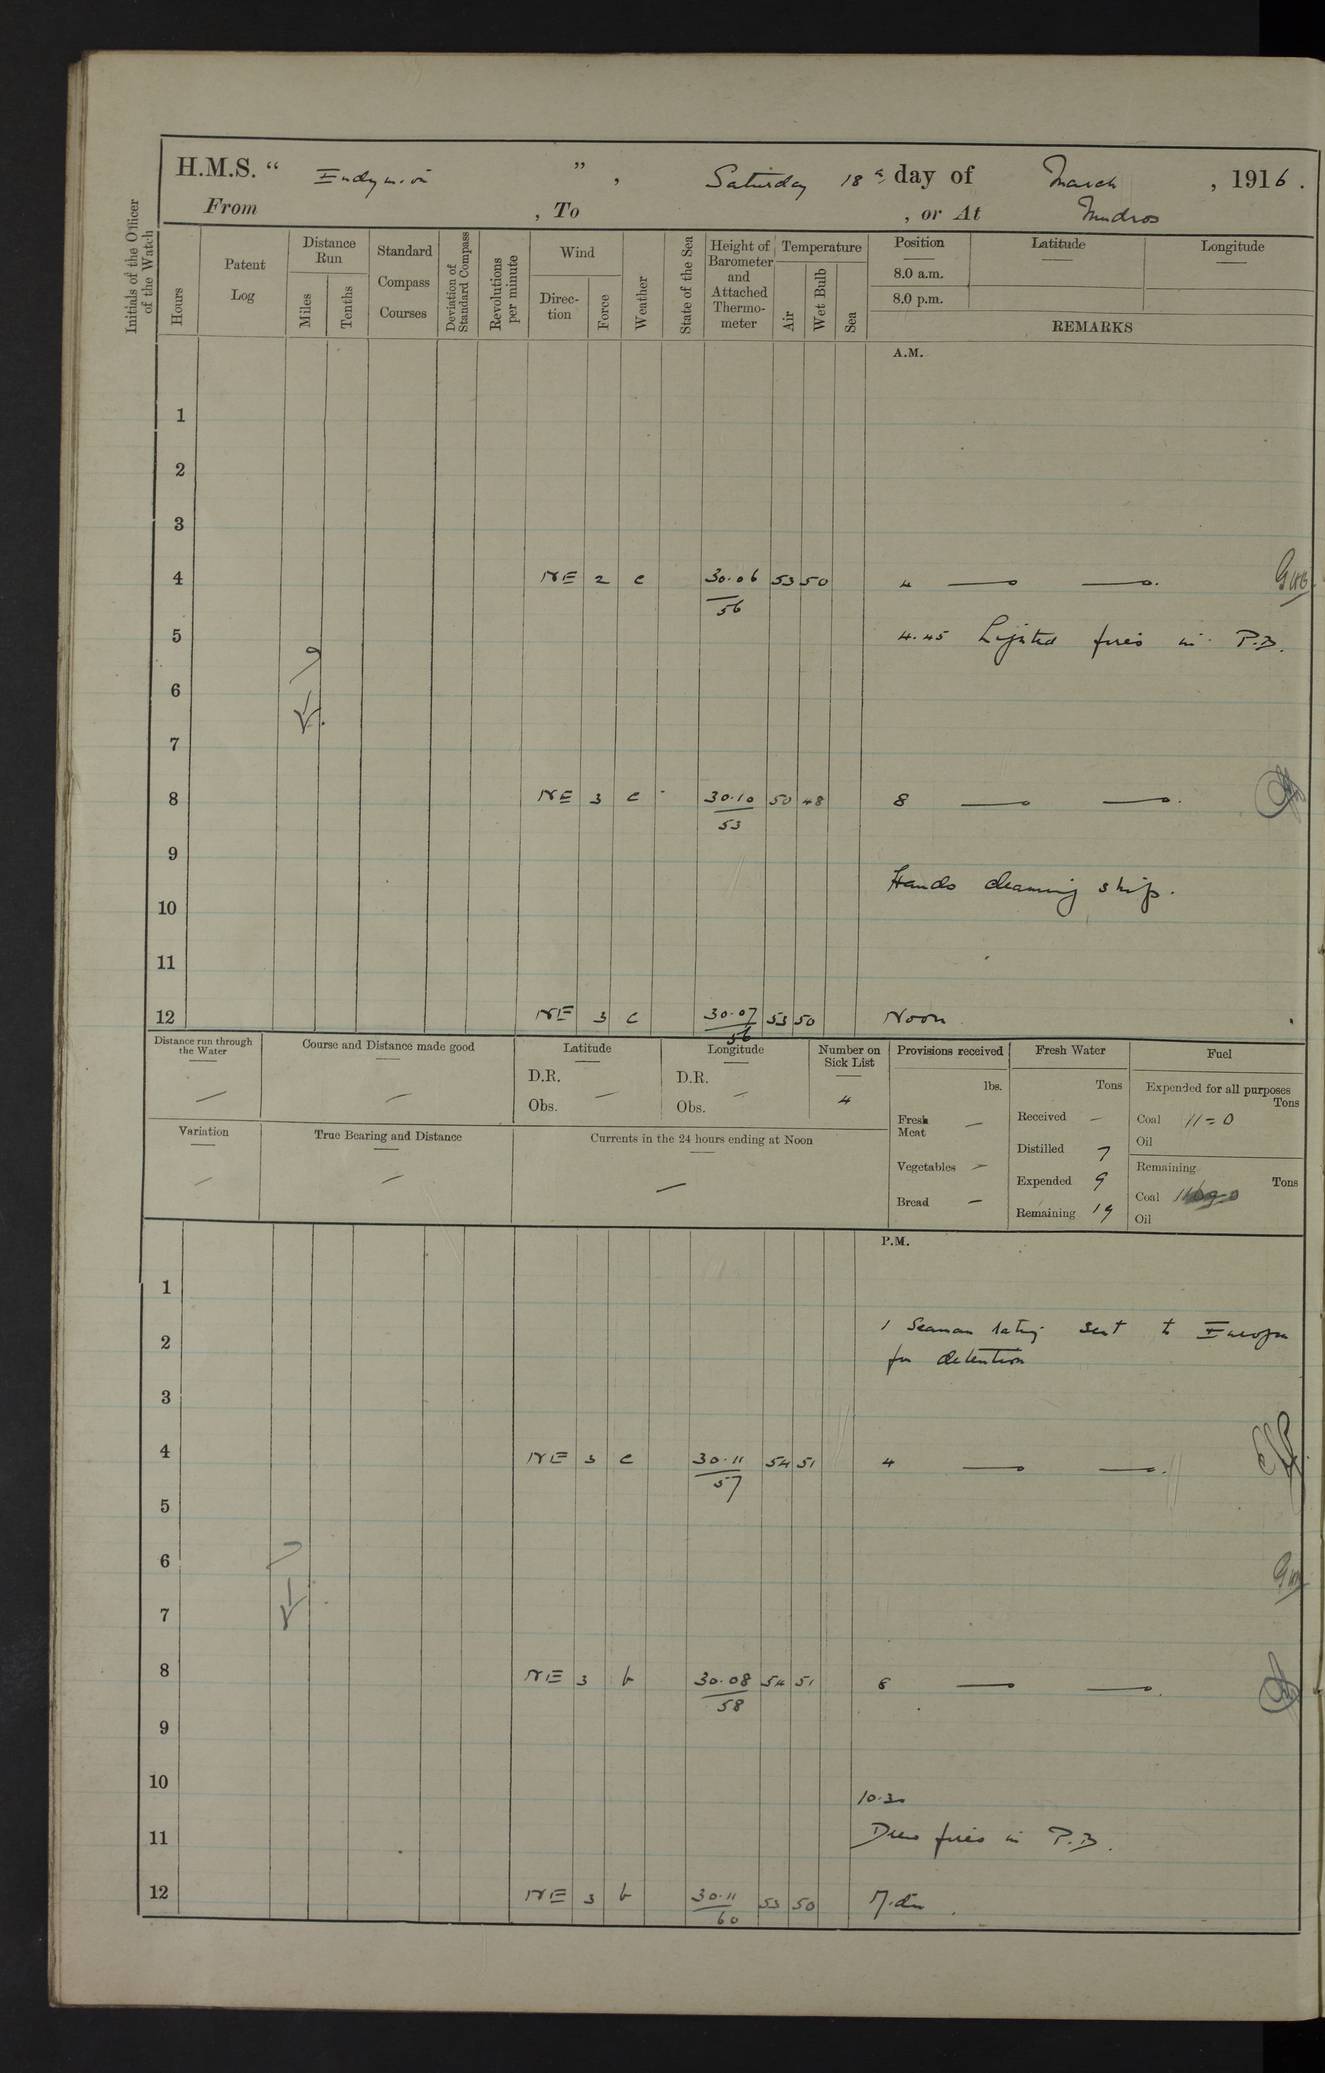 H.M.S. “ Endymion ” , Saturday 18th day of March , 1916 .
From , To , or At Mudros
Initials of the Officer of the Watch
Hours
Patent Log
Distance Run
Miles
Tenths
Standard Compass Courses
Deviation of Standard Compass
Revolutions per minute
Wind
Direc-tion
Force
Weather
State of the Sea
Height of Barometer and Attached Thermo-meter
Temperature
Air
Wet Bulb
Sea
Position
8.0 a.m.
8.0 p.m.
Latitude
Longitude
REMARKS
A.M.
1
2
3
4 NE 2 c 30.06 53 50 4
56
5 4.45 Lighted fires in P.B.
6
7
8 NE 3 c 30.10 50 48 8
53
9
Hands cleaning ship.
10
11
12 NE 3 c 30.07 53 50 Noon
56
Distance run through the Water —
Course and Distance made good —
Latitude
D.R.
Obs. —
Longitude
D.R.
Obs. —
Number on Sick List
4
Provisions received
lbs.
Fresh Meat —
Vegetables —
Bread —
Fresh Water
Tons
Received —
Distilled 7
Expended 9
Remaining 19
Fuel
Expended for all purposes
Tons
Coal 11=0
Oil
Remaining
Tons
Coal
Oil
Variation —
True Bearing and Distance —
Currents in the 24 hours ending at Noon —
P.M.
1
2 1 Seaman rating sent to Europa
for detention
3
4 NE 3 c 30.11 54 51 4
57
5
6
7
8 NE 3 b 30.08 54 51 8
58
9
10 10.30
11 Drew fires in P.B.
12 NE 3 b 30.11 53 50 Mdn
60